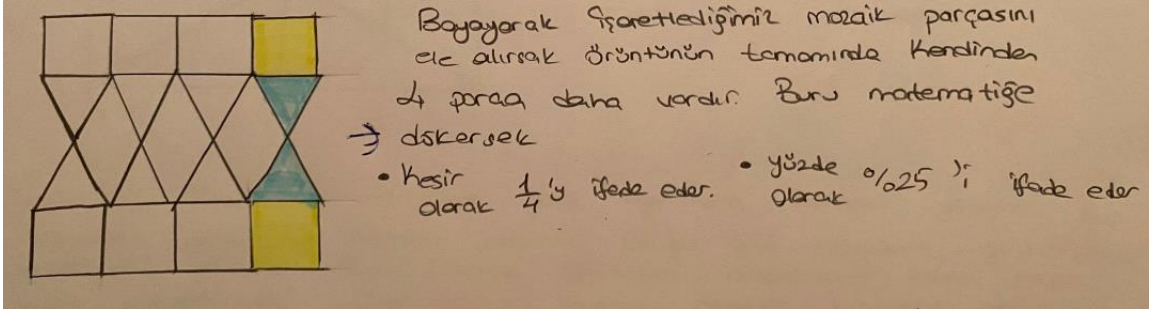 Boyayarak işaretlediğimiz mozaik parçasını
ele alırsak örüntünün tamamında kendinden
4 parça daha vardır. Bunu matematiğe
→ dökersek
• Kesir olarak 1/4 'ü ifade eder. • yüzde olarak %25 'i ifade eder